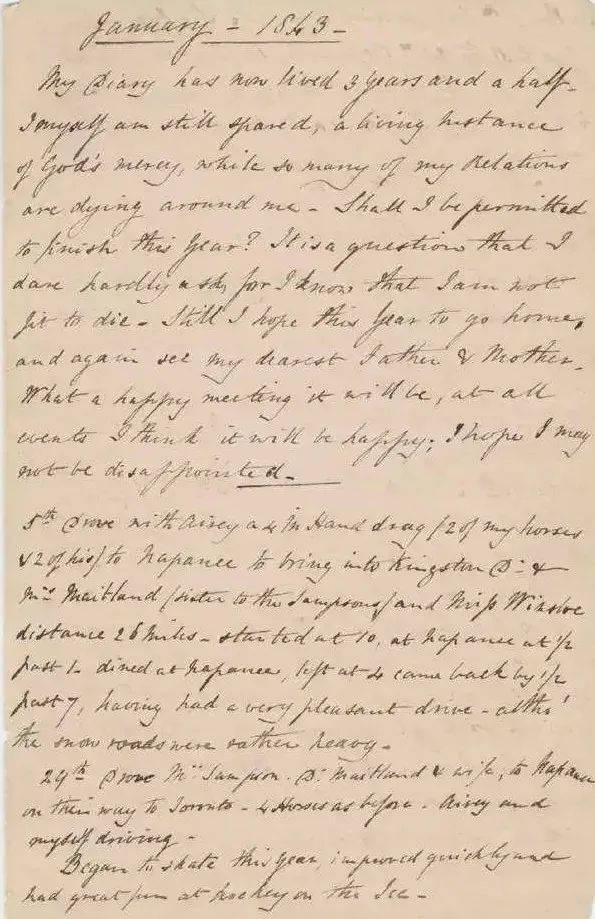 January - 1843 -
My Diary has now lived 3 Years and a half -
I myself am still spared, a living Instance
of God's mercy, while so many of my Relations
are dying around me - Shall I be permitted
to finish this Year? It is a question that I
dare hardly ask, for I know that I am not
fit to die - Still I hope this Year to go home,
and again see my dearest Father & Mother -
What a happy meeting it will be, at all
events I think it will be happy; I hope I may
not be disappointed -
5th Drove with Airey a 4 In Hand drag (2 of my horses
& 2 of his) to Napanee to bring into Kingston Dr &
Mrs Maitland (sister to the Sampsons) and Miss
distance 26 Miles - started at 10, at Napanee at 1/2
past 1 - dined at Napanee, left at 4 came back by 1/2
past 7, having had a very pleasant drive - altho'
the snow roads were rather heavy -
29th Drove Mrs Sampson. Dr Maitland & wife, to Napanee
on their way to Toronto - 4 Horses as before - Airey and
myself driving -
Began to skate this Year, improved quickly and
had great fun at hockey on the Ice -